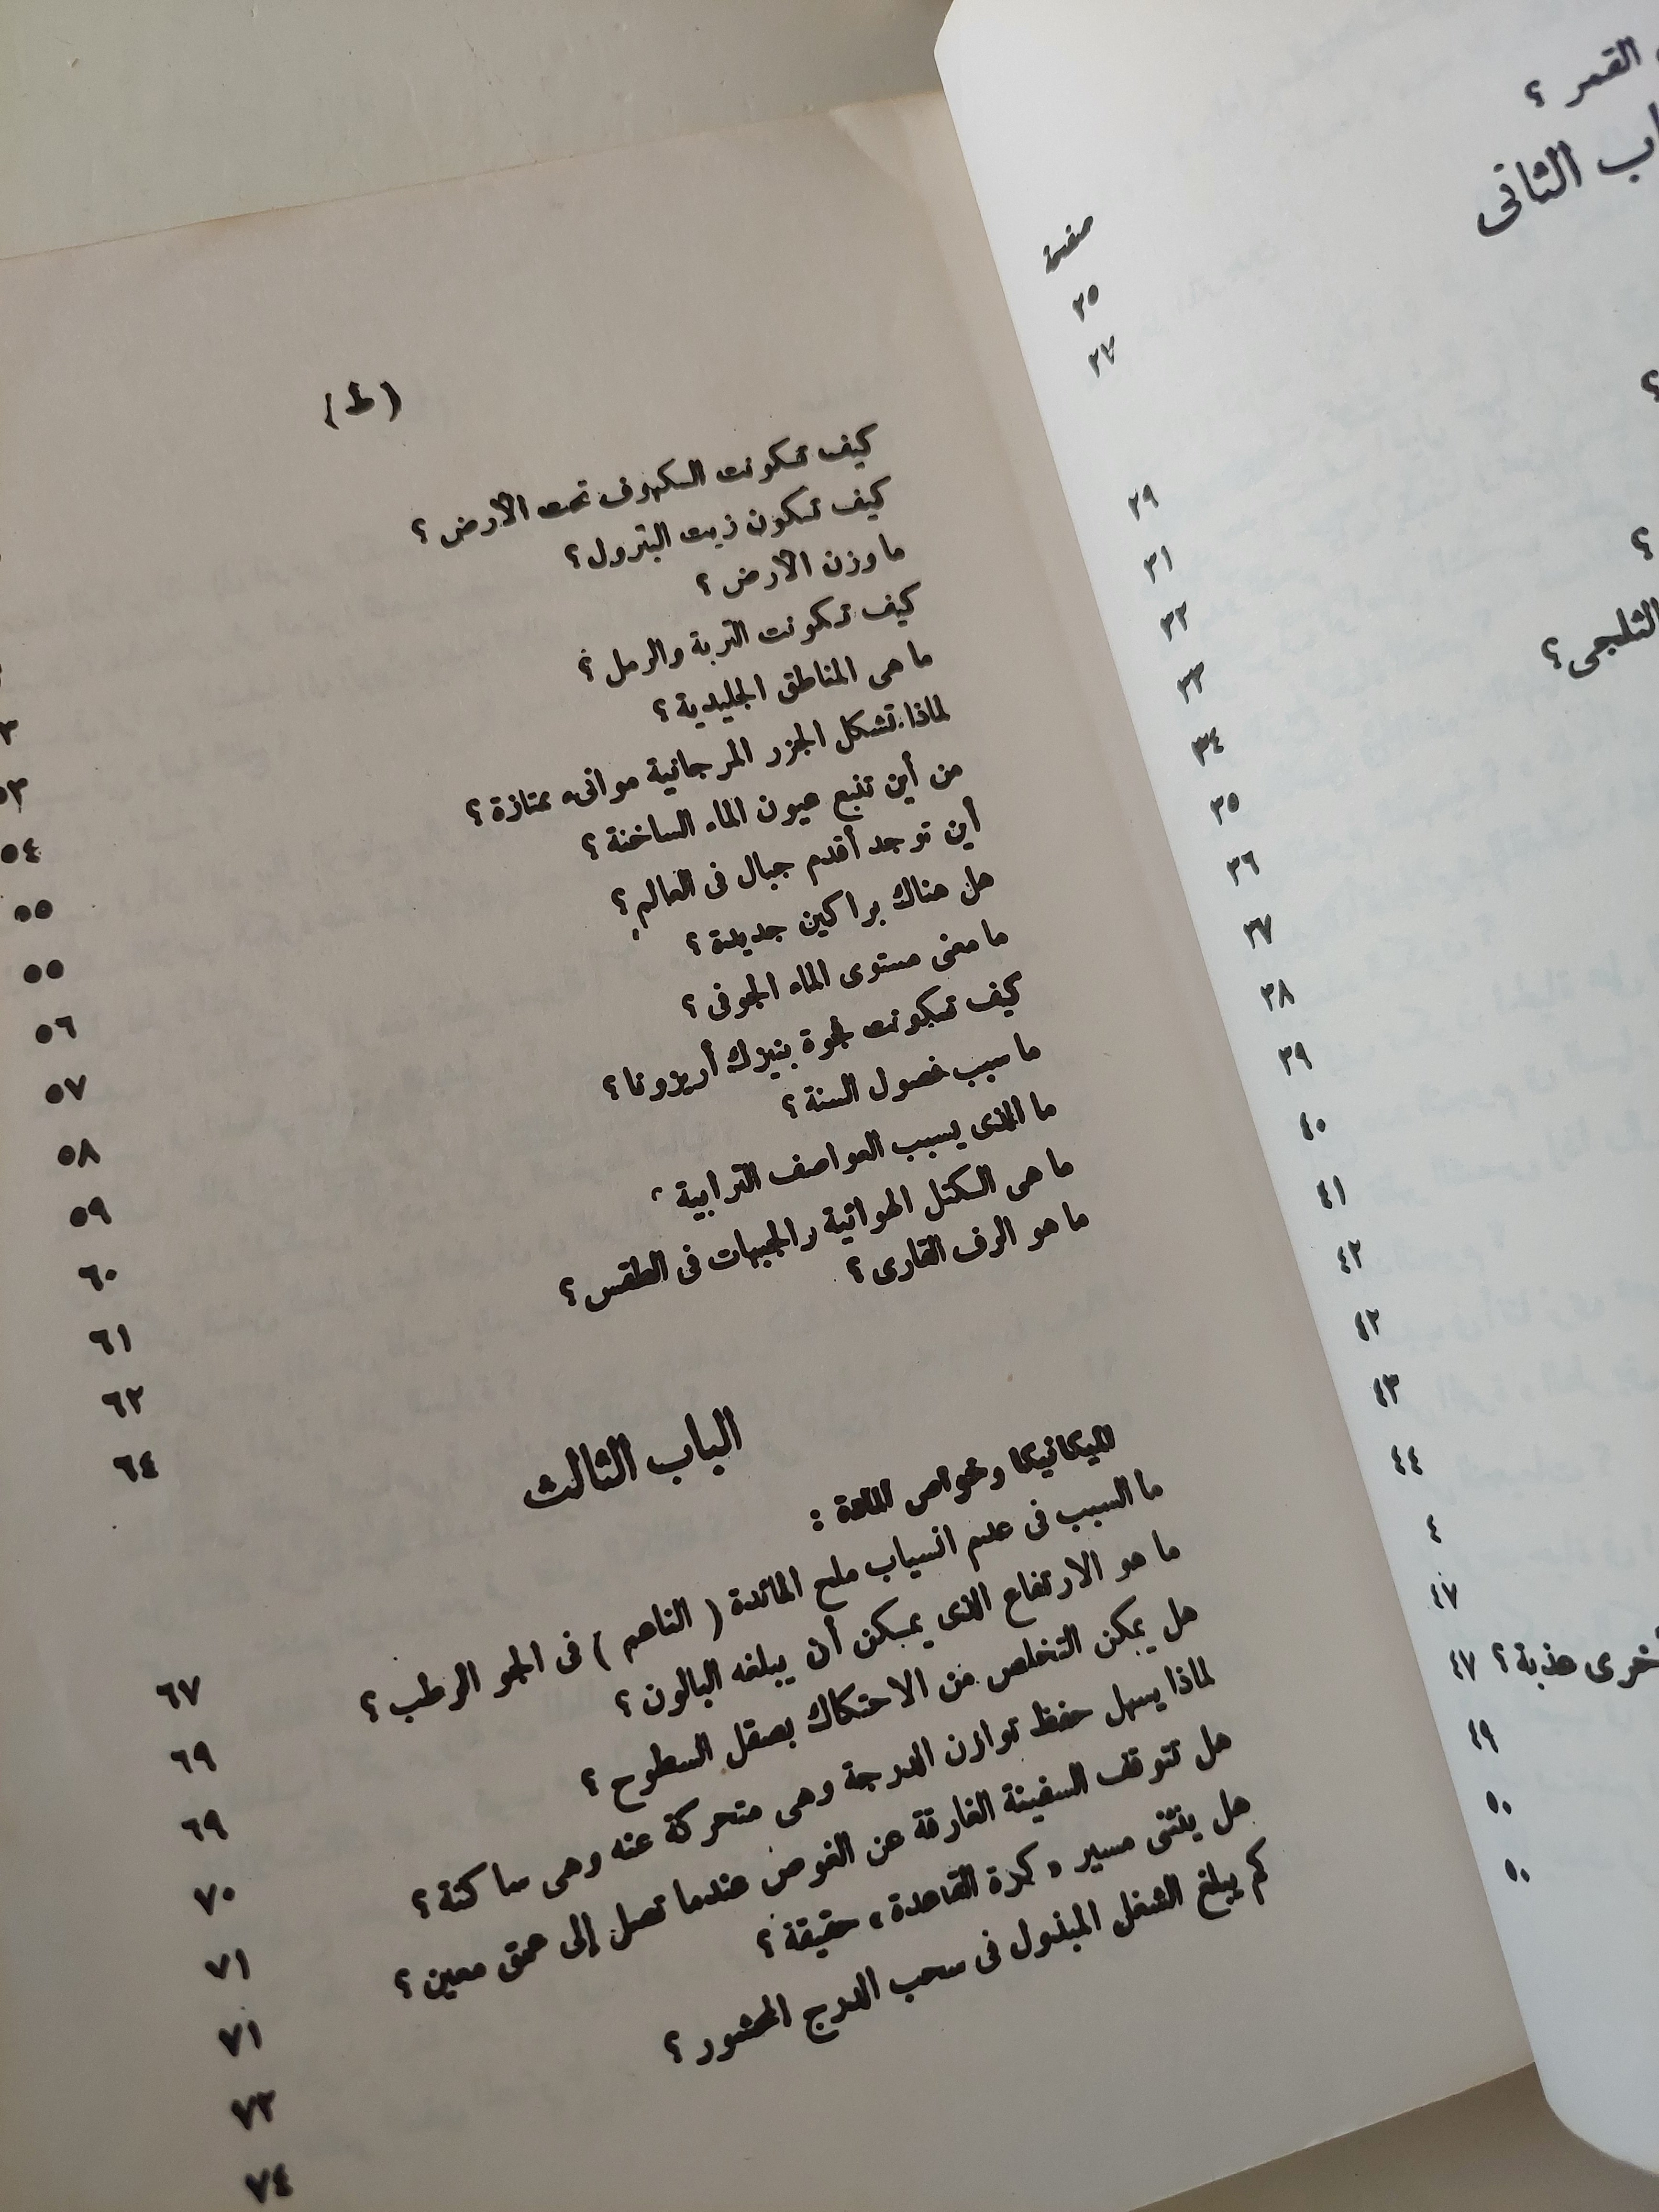 القمر ؟
الثانى
صفحة
٢٥
٢٧
؟
٢٩
؟
٣١
٣٢
الثلجى ؟
٣٣
٣٤
٣٥
٣٦
٣٧
٣٨
٣٩
٤٠
٤١
٤٢
٤٢
٤٣
٤٤
٤
٤٧
أخرى عذبة ؟ ٤٧
٤٩
٥٠
٥٠
( ط )
كيف تكونت الكهوف تحت الأرض ؟
كيف تكون زيت البترول ؟
ما وزن الأرض ؟
كيف تكونت التربة والرمل ؟
ما هى المناطق الجليدية ؟
لماذا تشكل الجزر المرجانية موانىء ممتازة ؟
من أين تنبع عيون الماء الساخنة ؟
أين توجد أقدم جبال فى العالم ؟
هل هناك براكين جديدة ؟
ما معنى مستوى الماء الجوفى ؟
كيف تكونت فجوة بنيزك أريزونا ؟
ما سبب فصول السنة ؟
ما الذى يسبب العواصف الترابية
ما هى الكتل الهوائية والجبهات فى الطقس ؟
ما هو الرف القارى ؟
٥٤
٥٥
٥٥
٥٦
٥٧
٥٨
٥٩
٦٠
٦١
٦٢
٦٤
الباب الثالث
الميكانيكا وخواص المادة :
ما السبب فى عدم انسياب ملح المائدة ( الناعم ) فى الجو الرطب ؟ ٦٧
ما هو الارتفاع الذى يمكن أن يبلغه البالون ؟ ٦٩
هل يمكن التخلص من الاحتكاك بصقل السطوح ؟ ٦٩
لماذا يسهل حفظ توازن الدرجة وهى متحركة عنه وهى ساكنة ؟ ٧٠
هل تتوقف السفينة الغارقة عن الغوص عندما تصل إلى عمق معين ؟ ٧١
هل ينثنى مسير « كرة القاعدة » حقيقة ؟ ٧١
كم يبلغ الشغل المبذول فى سحب الدرج المحشور ؟ ٧٣
٧٤